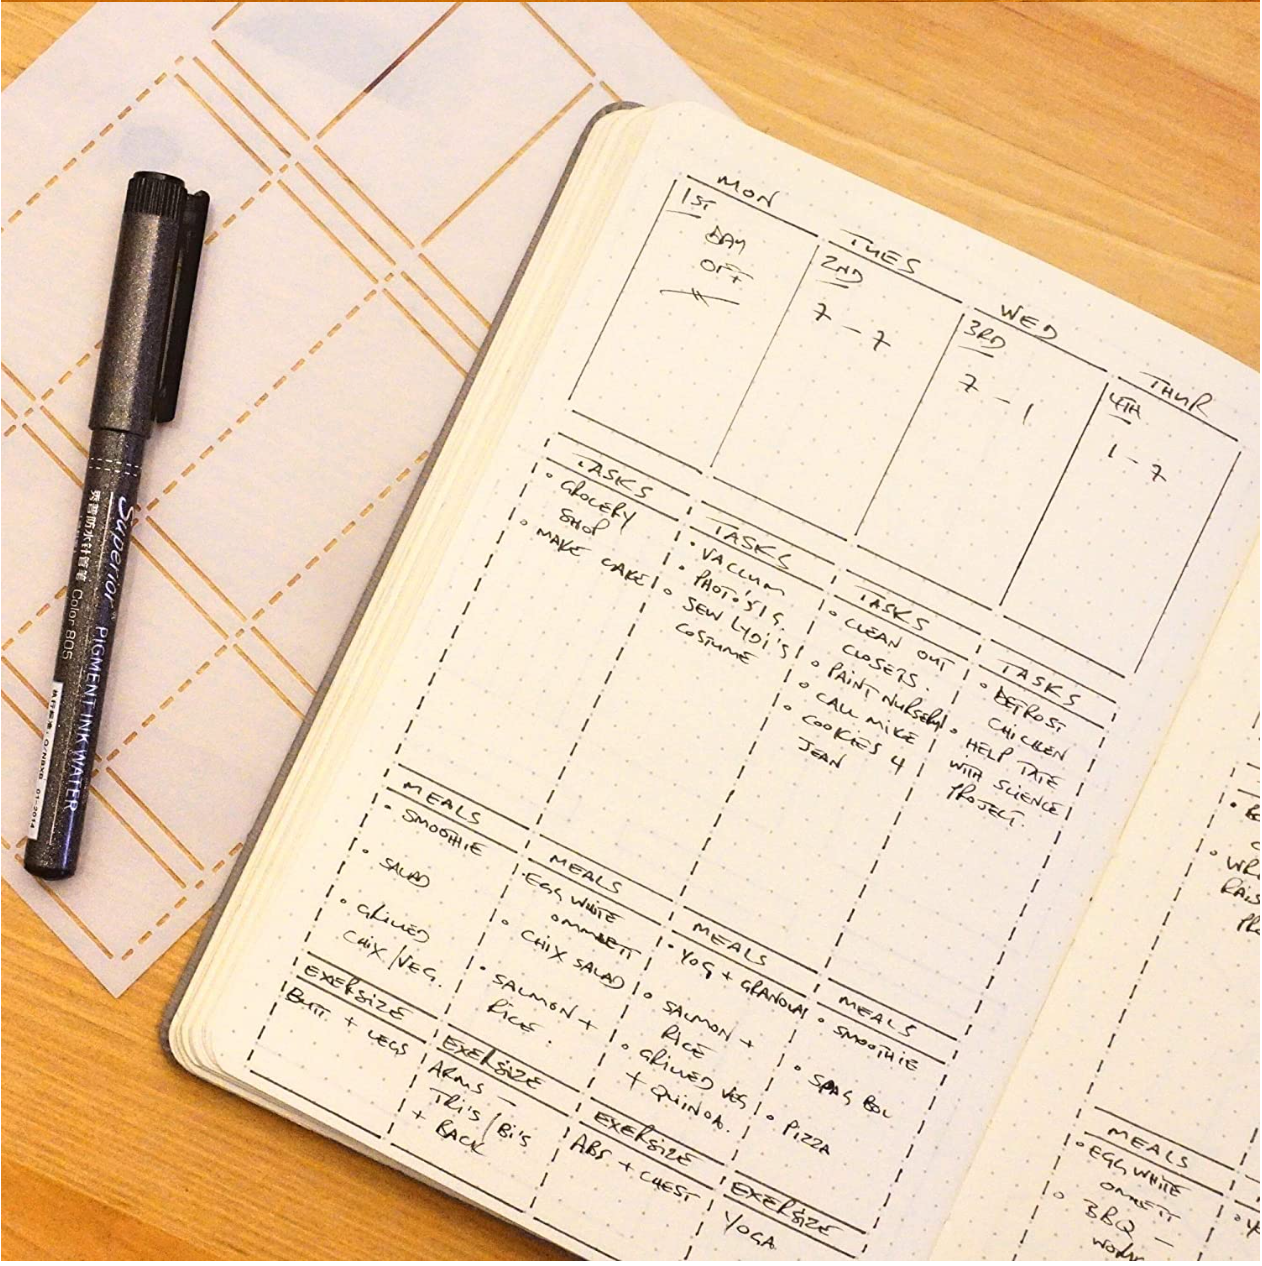 MON
1ST
DAY
OFF
TUES
2ND
7 - 7
WED
3RD
7 - 1
THUR
4TH
1 - 7
TASKS
• GROCERY
SHOP
• MAKE CAKE!
TASKS
• VACCUM
• PHOTO'S IG
• SEW LYDI'S
COSTUME
TASKS
• CLEAN OUT
CLOSETS.
• PAINT NURSERY
• CALL MIKE
• COOKIES 4
JEAN
TASKS
• DEFROST
CHICKEN
• HELP TATE
WITH SCIENCE
PROJECT.
MEALS
• SMOOTHIE
• SALAD
• GRILLED
CHIX/VEG.
MEALS
• EGG WHITE
OMMLETT
• CHIX SALAD
• SALMON +
RICE.
MEALS
• YOG + GRANOLA
• SALMON +
RICE
• GRILLED VEG
+ QUINOA.
MEALS
• SMOOTHIE
• SPAG BOL
• PIZZA
EXERSIZE
BUTT + LEGS
EXERSIZE
ARMS -
TRI'S/BI'S
+ BACK
EXERSIZE
ABS + CHEST
EXERSIZE
YOGA
MEALS
• EGG WHITE
OMLETT
• BBQ -
Superior PIGMENT INK WATER
秀普防水针管笔 Color 805
01-2014